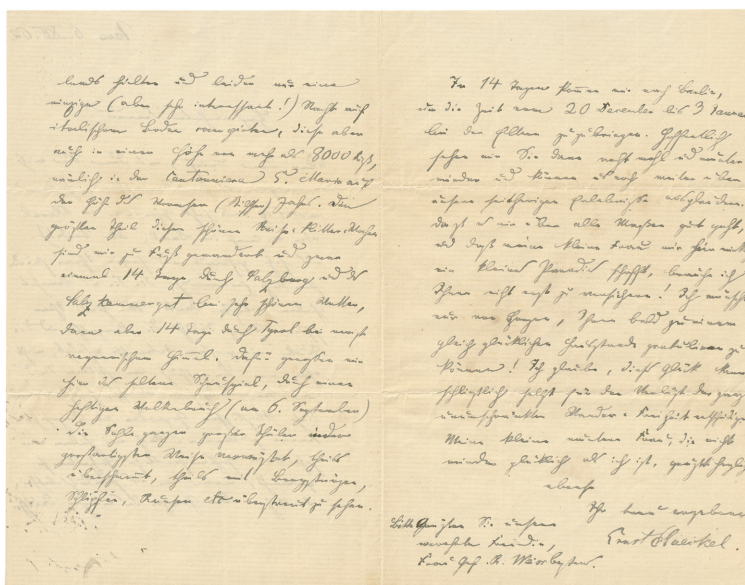 lands hielten und leider nur eine
einzige (aber sehr interessant!) Nacht auf
italischem Boden campirten, diese aber
auch in einer Höhe von mehr als 8000 Fuß,
nämlich in der Cantoniera S. Maria auf
der Höhe des Wormser (Stilfser) Jochs. Den
größten Theil dieser schönen Reise
sind wir zu Fuß gewandert und zwar
einmal 14 Tage durch Salzburg und das
Salzkammergut bei sehr schönem Wetter,
dann aber 14 Tage durch Tyrol bei meist
regnerischem Himmel. Dafür genossen wir
hier das seltene Schauspiel, durch einen
heftigen Wolkenbruch (am 6. September)
die Sohle ganzer großer Thäler in der
großartigsten Weise verwüstet, theils
überschwemmt, theils mit Bergstürzen,
etc übersträut zu sehen.
In 14 Tagen kommen wir nach Berlin,
um die Zeit vom 20 December bis 3 Januar
bei den Eltern zuzubringen. Hoffentlich
sehen wir Sie dann recht wohl und munter
wieder und können uns noch weiter über
unsere seitherigen Erlebnisse
daß es mir über alle Maaßen gut geht,
und daß meine kleine Frau mir hier
ein kleines Paradies schafft, brauche ich
Ihnen nicht erst zu versichern! Ich wünsche
nur von Herzen, Ihnen bald zu einem
gleich glücklichen Hausstande gratuliren zu
können! Ich glaube, dieß Glück kann
schließlich selbst für den Verlust der ganz
unumschränkten Wander-Freiheit
Meine kleine muntere Frau, die nicht
minder glücklich als ich ist, grüßt herzlich
ebenso
Ihr treu ergebener
Ernst Haeckel.
Bitte Grüßen Sie unsere
verehrte Freundin,
Frau Geh. R.